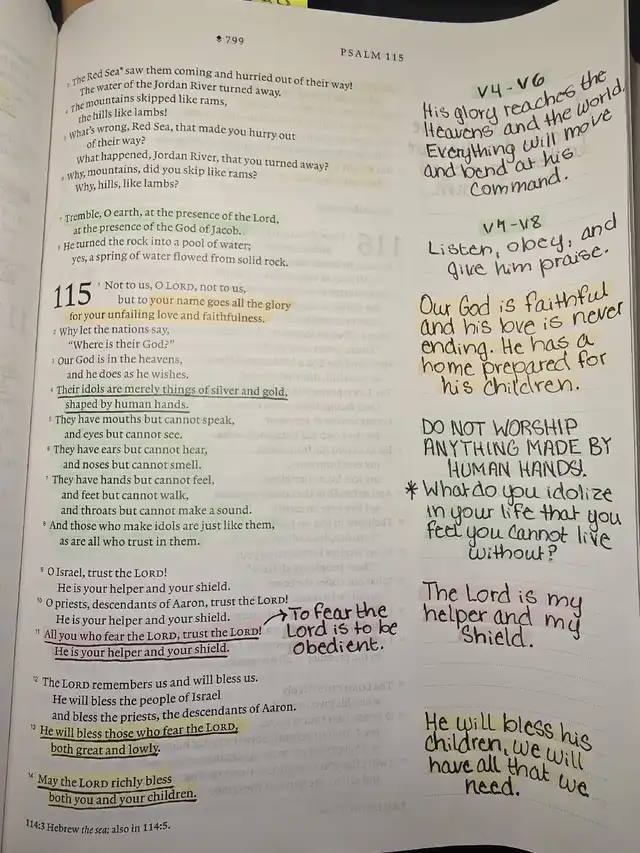 ♣ 799
PSALM 115
3 The Red Sea* saw them coming and hurried out of their way!
The water of the Jordan River turned away.
4 The mountains skipped like rams,
the hills like lambs!
5 What's wrong, Red Sea, that made you hurry out
of their way?
What happened, Jordan River, that you turned away?
6 Why, mountains, did you skip like rams?
Why, hills, like lambs?
7 Tremble, O earth, at the presence of the Lord,
at the presence of the God of Jacob.
8 He turned the rock into a pool of water;
yes, a spring of water flowed from solid rock.
115 1 Not to us, O LORD, not to us,
but to your name goes all the glory
for your unfailing love and faithfulness.
2 Why let the nations say,
“Where is their God?”
3 Our God is in the heavens,
and he does as he wishes.
4 Their idols are merely things of silver and gold,
shaped by human hands.
5 They have mouths but cannot speak,
and eyes but cannot see.
6 They have ears but cannot hear,
and noses but cannot smell.
7 They have hands but cannot feel,
and feet but cannot walk,
and throats but cannot make a sound.
8 And those who make idols are just like them,
as are all who trust in them.
9 O Israel, trust the LORD!
He is your helper and your shield.
10 O priests, descendants of Aaron, trust the LORD!
He is your helper and your shield.
11 All you who fear the LORD, trust the LORD!
He is your helper and your shield.
→ To fear the
Lord is to be
obedient.
12 The LORD remembers us and will bless us.
He will bless the people of Israel
and bless the priests, the descendants of Aaron.
13 He will bless those who fear the LORD,
both great and lowly.
14 May the LORD richly bless
both you and your children.
114:3 Hebrew the sea; also in 114:5.
V4-V6
His glory reaches the
Heavens and the world.
Everything will move
and bend at his
command.
V7-V8
Listen, obey, and
give him praise.
Our God is faithful
and his love is never
ending. He has a
home prepared for
his children.
DO NOT WORSHIP
ANYTHING MADE BY
HUMAN HANDS!
* What do you idolize
in your life that you
feel you cannot live
without?
The Lord is my
helper and my
Shield.
He will bless his
children, we will
have all that we
need.